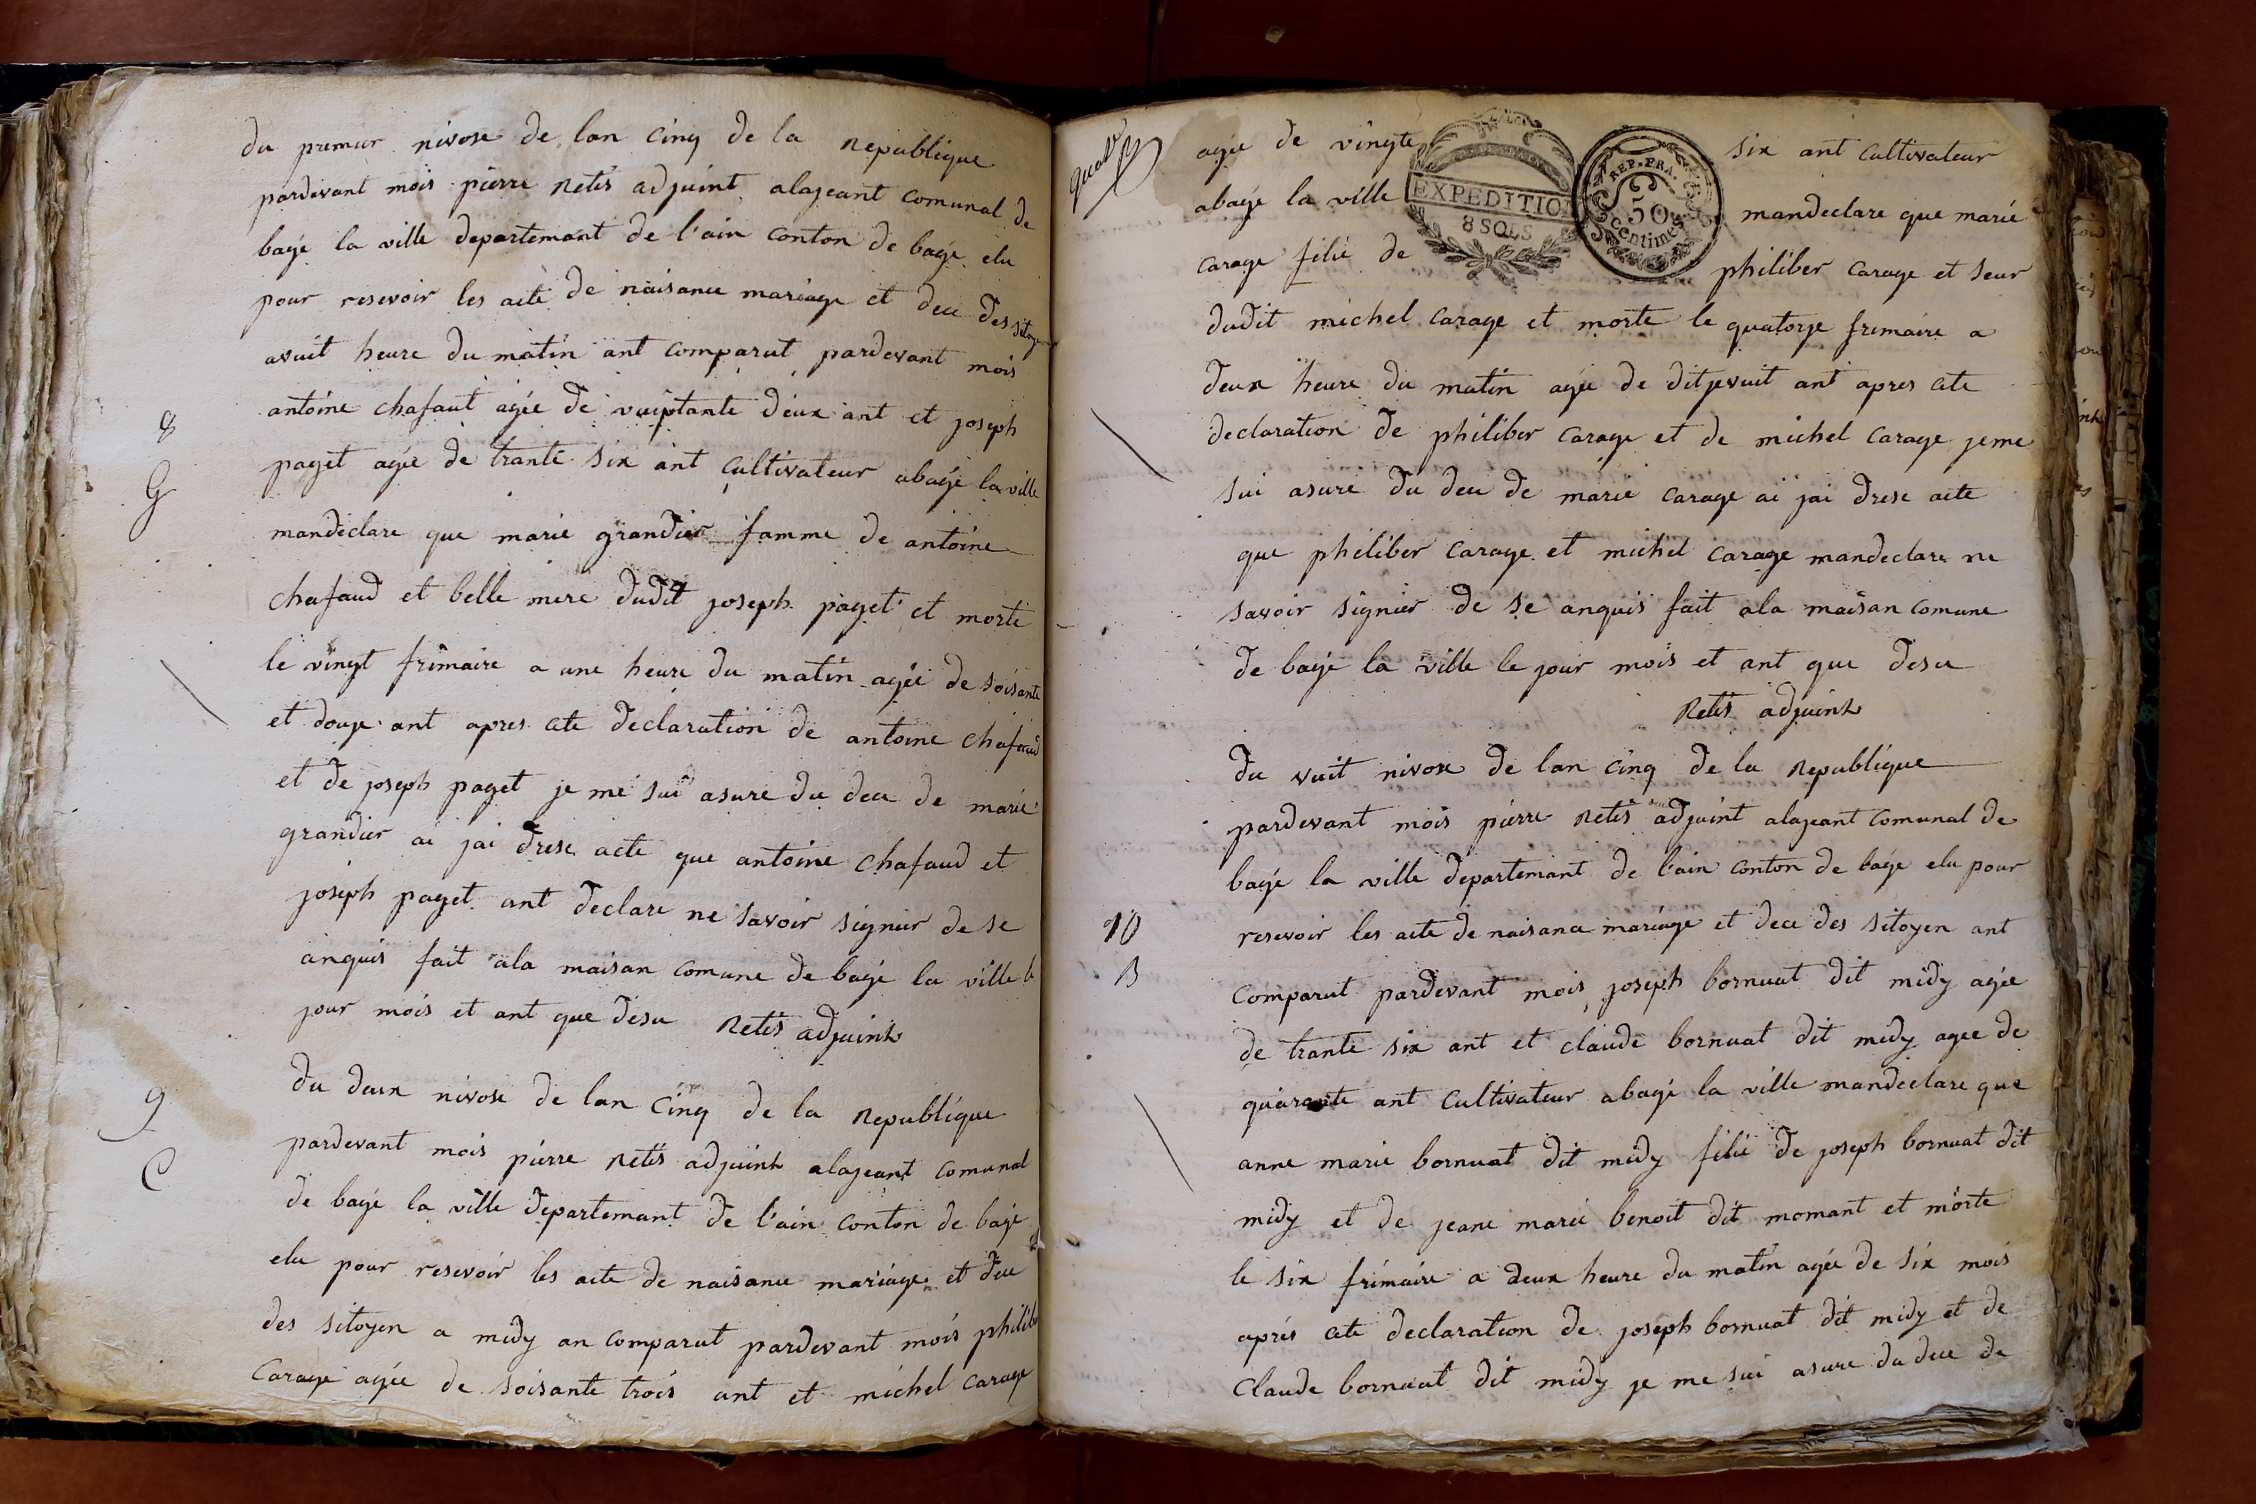 du premier nivose de lan cinq de la Republique
pardevant mois pierre Retis adjuint alajeant comunal de
bagé la ville departemant de l'ain conton de bagé elu
pour resevoir les acte de naisance mariage et dece des sitoyen
avuit heure du matin ant comparut pardevant mois
antoine chafaut agée de vuiptante deux ant et joseph
8
paget agée de trante six ant cultivateur abagé la ville
G
mandeclare que marie grandier famme de antoine
chafaud et belle mere dudit joseph paget et morte
le vingt frimaire a une heure du matin agée de soisante
et douze ant apres cete declaration de antoine chafaud
et de joseph paget je me sui asure du dece de marie
grandier ai jai drese acte que antoine chafaud et
joseph paget ant declare ne savoir signier de se
anquis fait ala maisan comune de bagé la ville le
jour mois et ant que desu Retis adjuint
du deux nivose de lan cinq de la Republique
9
pardevant mois pierre Retis adjuint alajeant comunal
C
de bagé la ville departemant de l'ain conton de bagé
elu pour resevoir les acte de naisance mariage et dece
des sitoyen a midy an comparut pardevant mois philiber
Carage agée de soisante trois ant et michel carage
agée de vingte six ant cultivateur
EXPEDITION
8 SOLS
REP. FRA.
50
Centimes
abagé la ville mandeclare que marie
carage filie de philiber carage et seur
dudit michel carage et morte le quatorze frimaire a
deux heure du matin agée de ditzevuit ant apres cete
declaration de philiber carage et de michel carage jeme
sui asuré du dece de marie carage ai jai drese acte
que philiber carage et michel carage mandeclare ne
savoir signier de se anquis fait ala maisan comune
de bagé la ville le jour mois et ant que desu
Retis adjuint
du vuit nivose de lan cinq de la Republique
pardevant mois pierre Retis adjuint alajeant comunal de
bagé la ville departemant de l'ain conton de bagé elu pour
10
resevoir les acte de naisance mariage et dece des sitoyen ant
B
comparut pardevant mois joseph bornuat dit midy agée
de trante six ant et claude bornuat dit midy agee de
quarante ant cultivateur abagé la ville mandeclare que
anne marie bornuat dit midy filie de joseph bornuat dit
midy et de jeane marie benoit dit momant et morte
le six frimaire a deux heure du matin agée de six mois
aprés cete declaration de joseph bornuat dit midy et de
Claude bornuat dit midy je me sui asure du dece de